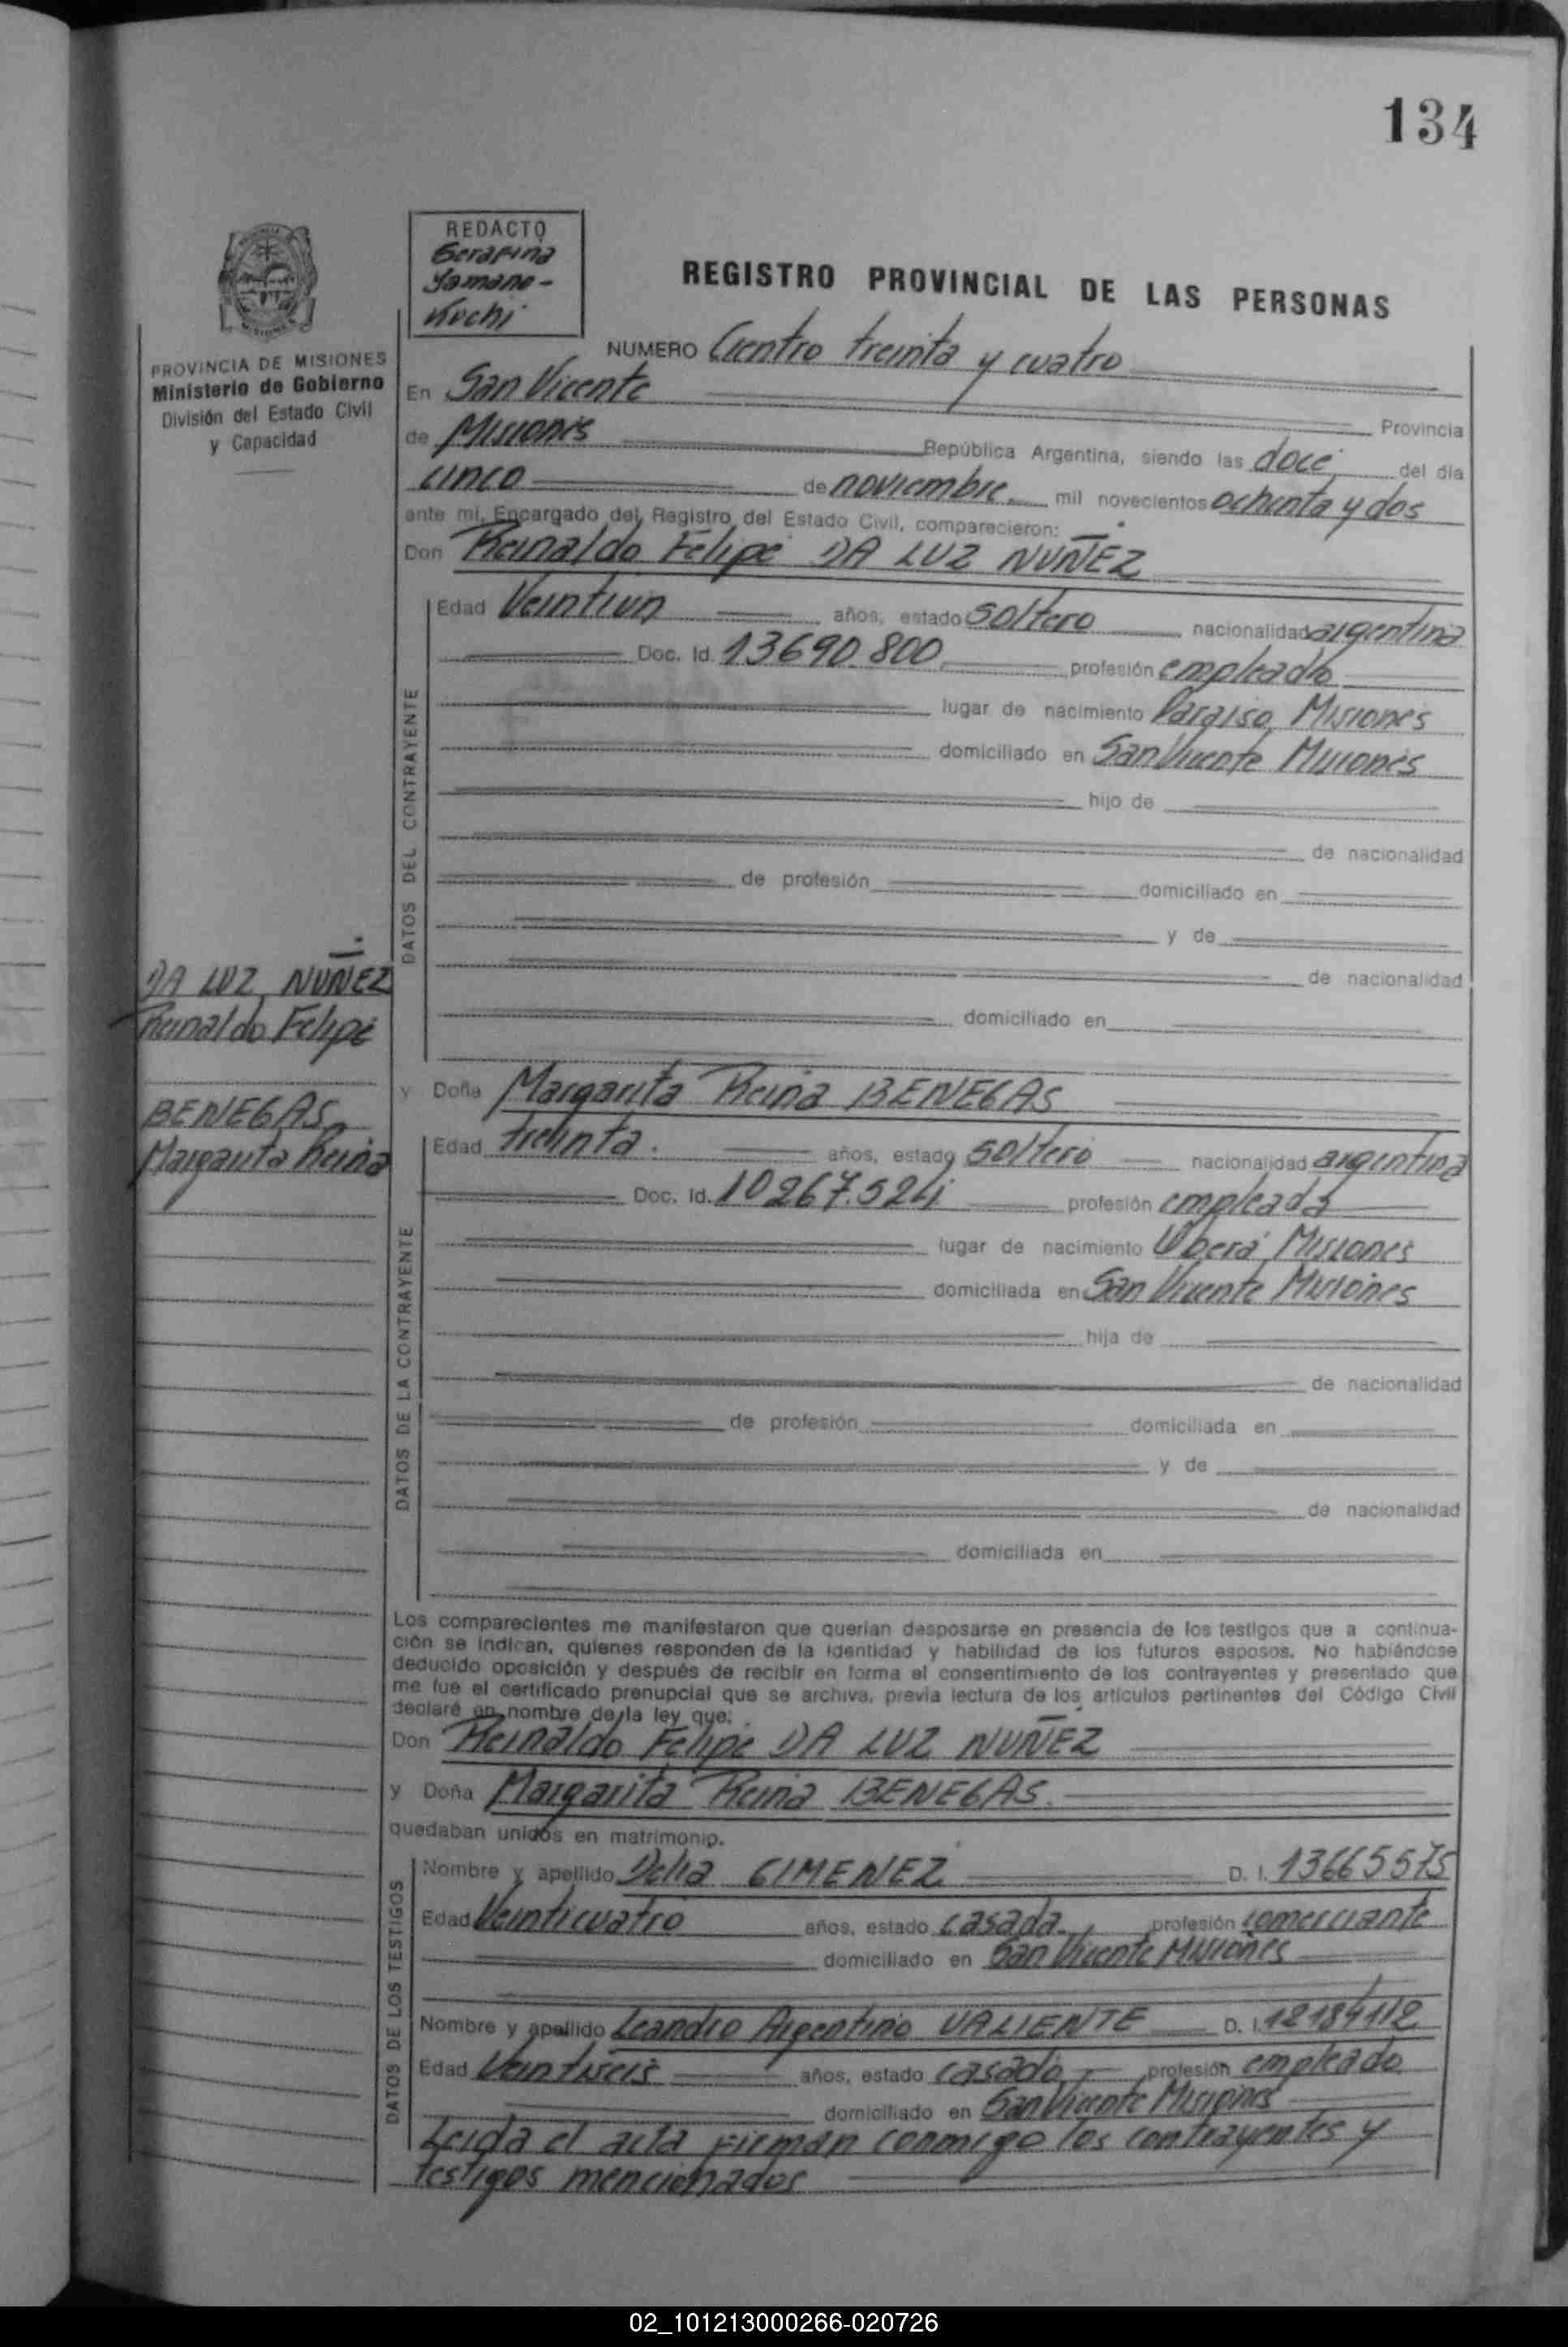 134
REDACTO
Serafina
Yamano-
Kuchi
REGISTRO PROVINCIAL DE LAS PERSONAS
PROVINCIA DE MISIONES
Ministerio de Gobierno
División del Estado Civil
y Capacidad
NUMERO Cientro treinta y cuatro
En San Vicente
Provincia
de Misiones República Argentina, siendo las doce del día
cinco de noviembre mil novecientos ochenta y dos
ante mí, Encargado del Registro del Estado Civil, comparecieron:
Don Reinaldo Felipe DA LUZ NUÑEZ
Edad Veintiun años, estado soltero nacionalidad argentina
Doc. Id. 13690.800 profesión empleado
lugar de nacimiento Paraiso, Misiones
domiciliado en San Vicente Misiones
hijo de
de nacionalidad
de profesión domiciliado en
y de
de nacionalidad
domiciliado en
DATOS DEL CONTRAYENTE
DA LUZ NUÑEZ
Reinaldo Felipe
BENEGAS
Margarita Reina
y Doña Margarita Reina BENEGAS
Edad treinta. años, estado soltero nacionalidad argentina
Doc. Id. 10267.524 profesión empleada
lugar de nacimiento Oberá Misiones
domiciliada en San Vicente Misiones
hija de
de nacionalidad
de profesión domiciliada en
y de
de nacionalidad
domiciliada en
DATOS DE LA CONTRAYENTE
Los comparecientes me manifestaron que querían desposarse en presencia de los testigos que a continua-
ción se indican, quienes responden de la identidad y habilidad de los futuros esposos. No habiéndose
deducido oposición y después de recibir en forma el consentimiento de los contrayentes y presentado que
me fue el certificado prenupcial que se archiva, previa lectura de los artículos pertinentes del Código Civil
declaré en nombre de la ley que:
Don Reinaldo Felipe DA LUZ NUÑEZ
y Doña Margarita Reina BENEGAS.
quedaban unidos en matrimonio.
Nombre y apellido Delia GIMENEZ D. I. 13665575
Edad Veinticuatro años, estado casada profesión comerciante
domiciliado en San Vicente Misiones
Nombre y apellido Leandro Argentino VALIENTE D. I. 12184112
Edad Veintiseis años, estado casado profesión empleado
domiciliado en San Vicente Misiones
DATOS DE LOS TESTIGOS
Leida el acta firman conmigo los contrayentes y
testigos mencionados
02_101213000266-020726